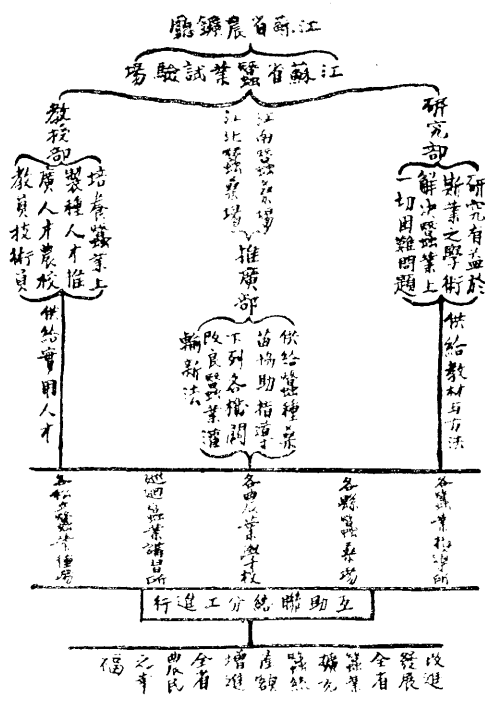 江苏省農鑛廳
江蘇省蠶業試驗場
研究部
研究有益於
斯業之學術
解决蠶業上
一切困難問題
供給教材与方法
江南蠶桑場
江北蠶桑場
推廣部
供給蠶種桑
苗協助指導
下列各機關
改良蠶業灌
輸新法
教授部
培養蠶業上
製種人才推
廣人才農校
教員技術員
供給實用人才
各蠶業指導所
各縣蠶桑場
各農業學校
巡迴蠶業講習所
各私立蠶業種場
互助聯絡分工進行
改進
發展
全省
蠶業
擴充
蠶絲
產額
增進
全省
農民
之幸
福